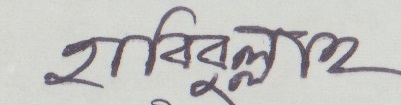 হাবিবুল্লাহ